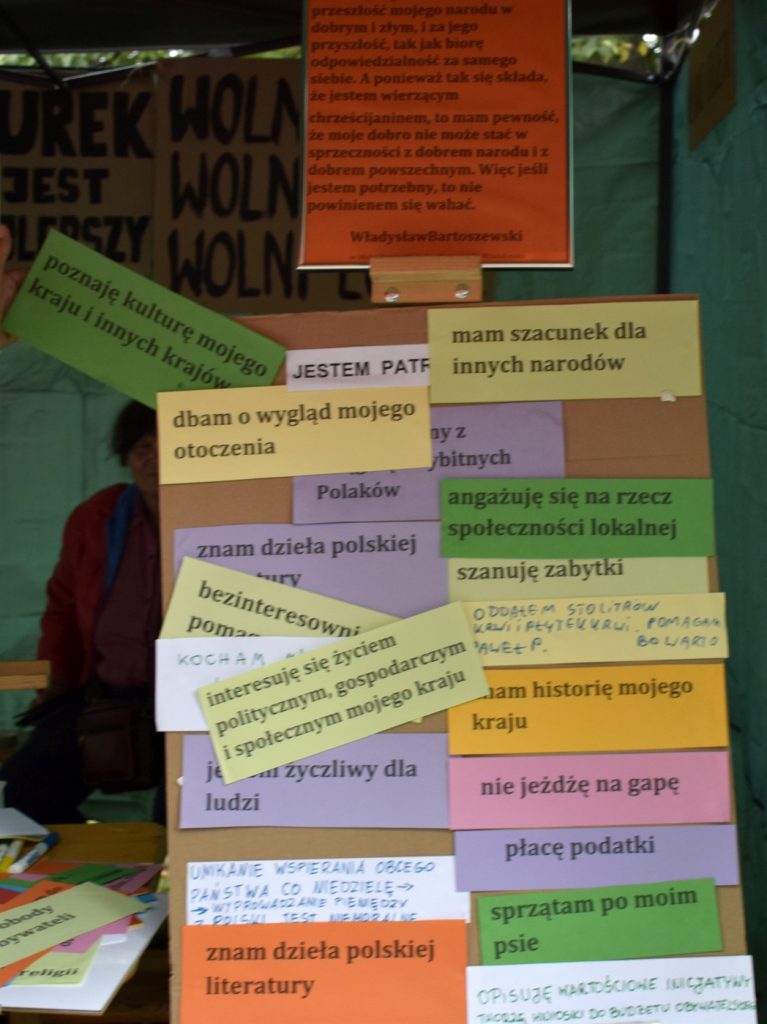 przeszłość mojego narodu w
dobrym i złym, i za jego
przyszłość, tak jak biorę
odpowiedzialność za samego
siebie. A ponieważ tak się składa,
że jestem wierzącym
chrześcijaninem, to mam pewność,
że moje dobro nie może stać w
sprzeczności z dobrem narodu i z
dobrem powszechnym. Więc jeśli
jestem potrzebny, to nie
powinienem się wahać.
WładysławBartoszewski
UREK
JEST
WOLN
WOLN
WOLN
poznaję kulturę mojego
kraju i innych krajów
JESTEM PATR
mam szacunek dla
innych narodów
dbam o wygląd mojego
otoczenia
ny z
ybitnych
Polaków
angażuję się na rzecz
społeczności lokalnej
znam dzieła polskiej
tury
szanuję zabytki
bezinteresowni
pomag
ODDAŁEM STO LITRÓW
KRWI I PŁYTEK KRWI. POMAGAM
PAWEŁ P. BO WARTO
KOCHAM
interesuję się życiem
politycznym, gospodarczym
i społecznym mojego kraju
nam historię mojego
kraju
je m życzliwy dla
ludzi
nie jeżdżę na gapę
płacę podatki
UNIKANIE WSPIERANIA OBCEGO
PAŃSTWA CO NIEDZIELĘ →
→ WYPROWADZANIE PIENIĘDZY
Z POLSKI JEST NIEMORALNE
sprzątam po moim
psie
znam dzieła polskiej
literatury
OPISUJĘ WARTOŚCIOWE INICJATYWY
TWORZĘ WNIOSKI DO BUDŻETU OBYWATELSK
obody
bywateli
religii